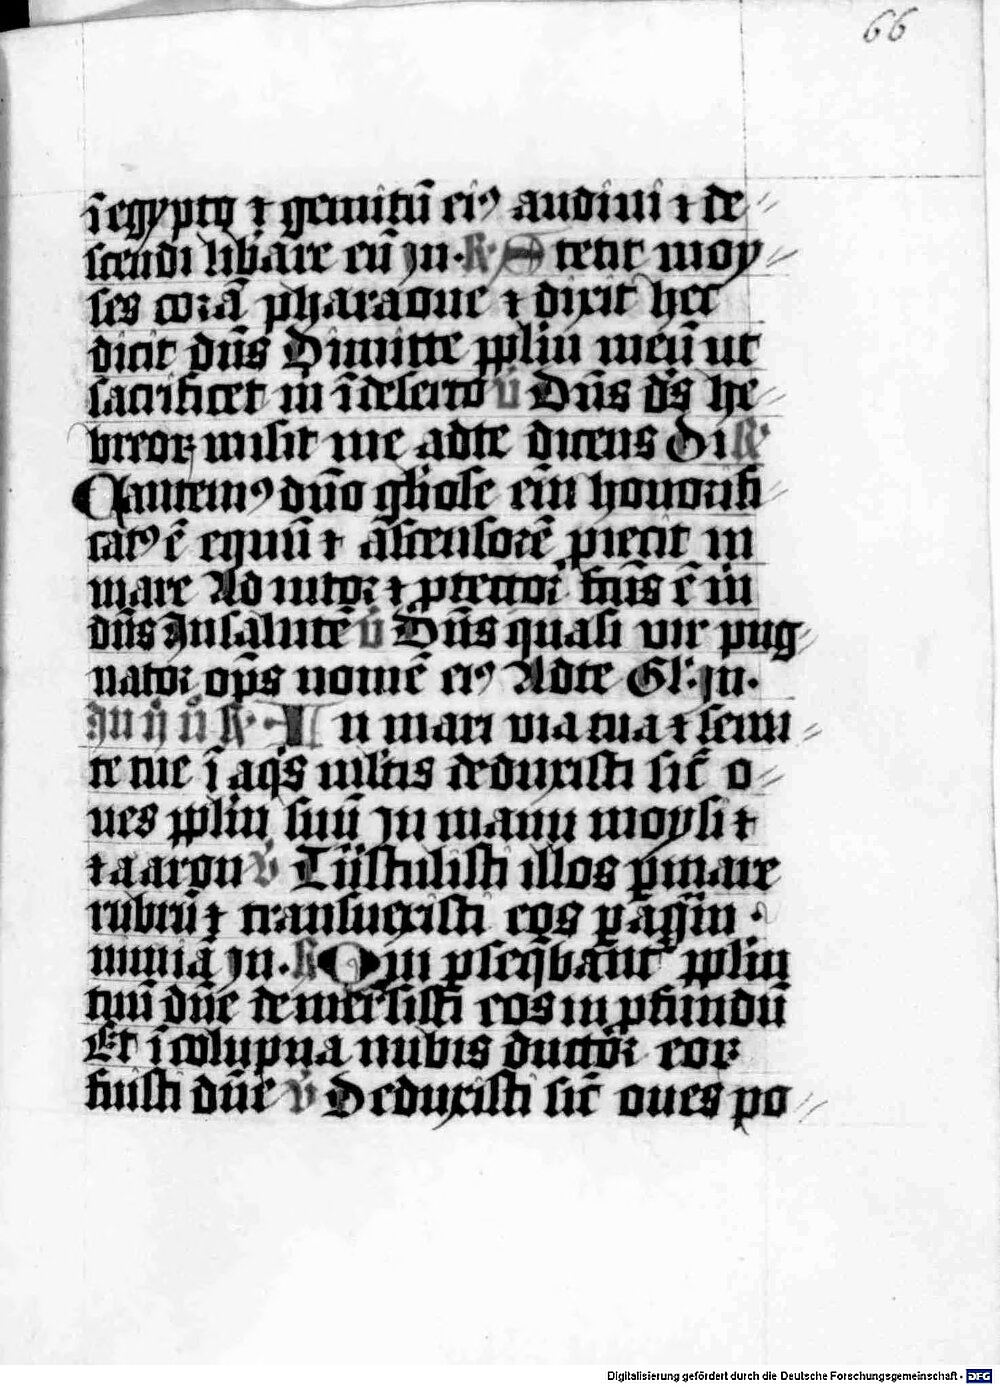 66
ī egypto ⁊ gemitū eiꝰ audiui ⁊ de//
scendi lib̾are eū Jn. R̷. Stetit moy//
ses corā pharaone ⁊ dixit hec
dicit dn̄s Dimitte ppl̄m meū ut
sacrificet m̄ ī deserto v̄ Dn̄s ds̄ he//
breoꝝ misit me adte dicens Di R̷.
Cantemꝰ dn̄o gl̄iose em̄ honorifi//
catꝰ ē equū ⁊ ascensorē p̄iecit in
mare Ad iutor ⁊ ꝓtector fcūs ē m̄
dn̄s In salutē v̄ Dn̄s quasi vir pug//
nator op̄s nomē eiꝰ Adte Gl. Jn.
Jn ij n̄ R̷. In mari via tua ⁊ semi//
te tue ī aqs̄ ml̄tis deduxisti sic̄ o//
ues ppl̄m tuū Jn manu moysi ⁊
⁊ aaron v̄ Trn̄stulisti illos ꝑ mare
rubrū ⁊ transuexisti eos ꝑ aq̄m
nimiā Jn. R̷ Qui ꝑseq̄bant᷑ ppl̄m
tuū dn̄e demersisti eos in ꝓfundū
Et ī colupna nubis ductor eoꝝ
fuisti dn̄e v̄ Deduxisti sic̄ oues po//
Digitalisierung gefördert durch die Deutsche Forschungsgemeinschaft - DFG